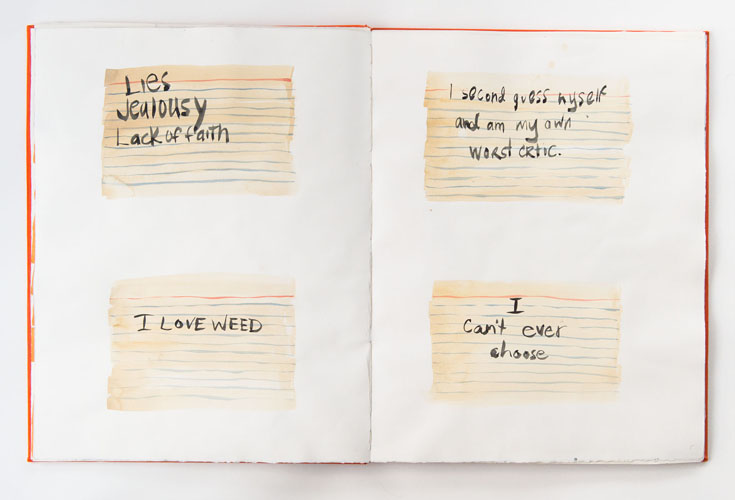 Lies
Jealousy
Lack of faith
I LOVE WEED
I second guess myself
and am my own
WORST CRTIC.
I
can't ever
choose